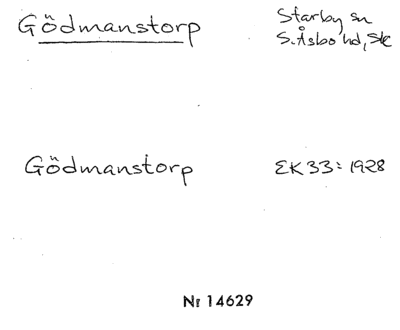 Gödmanstorp
Starby sn
S. Åsbo hd, Sk
Gödmanstorp
EK 33: 1928
Nº 14629